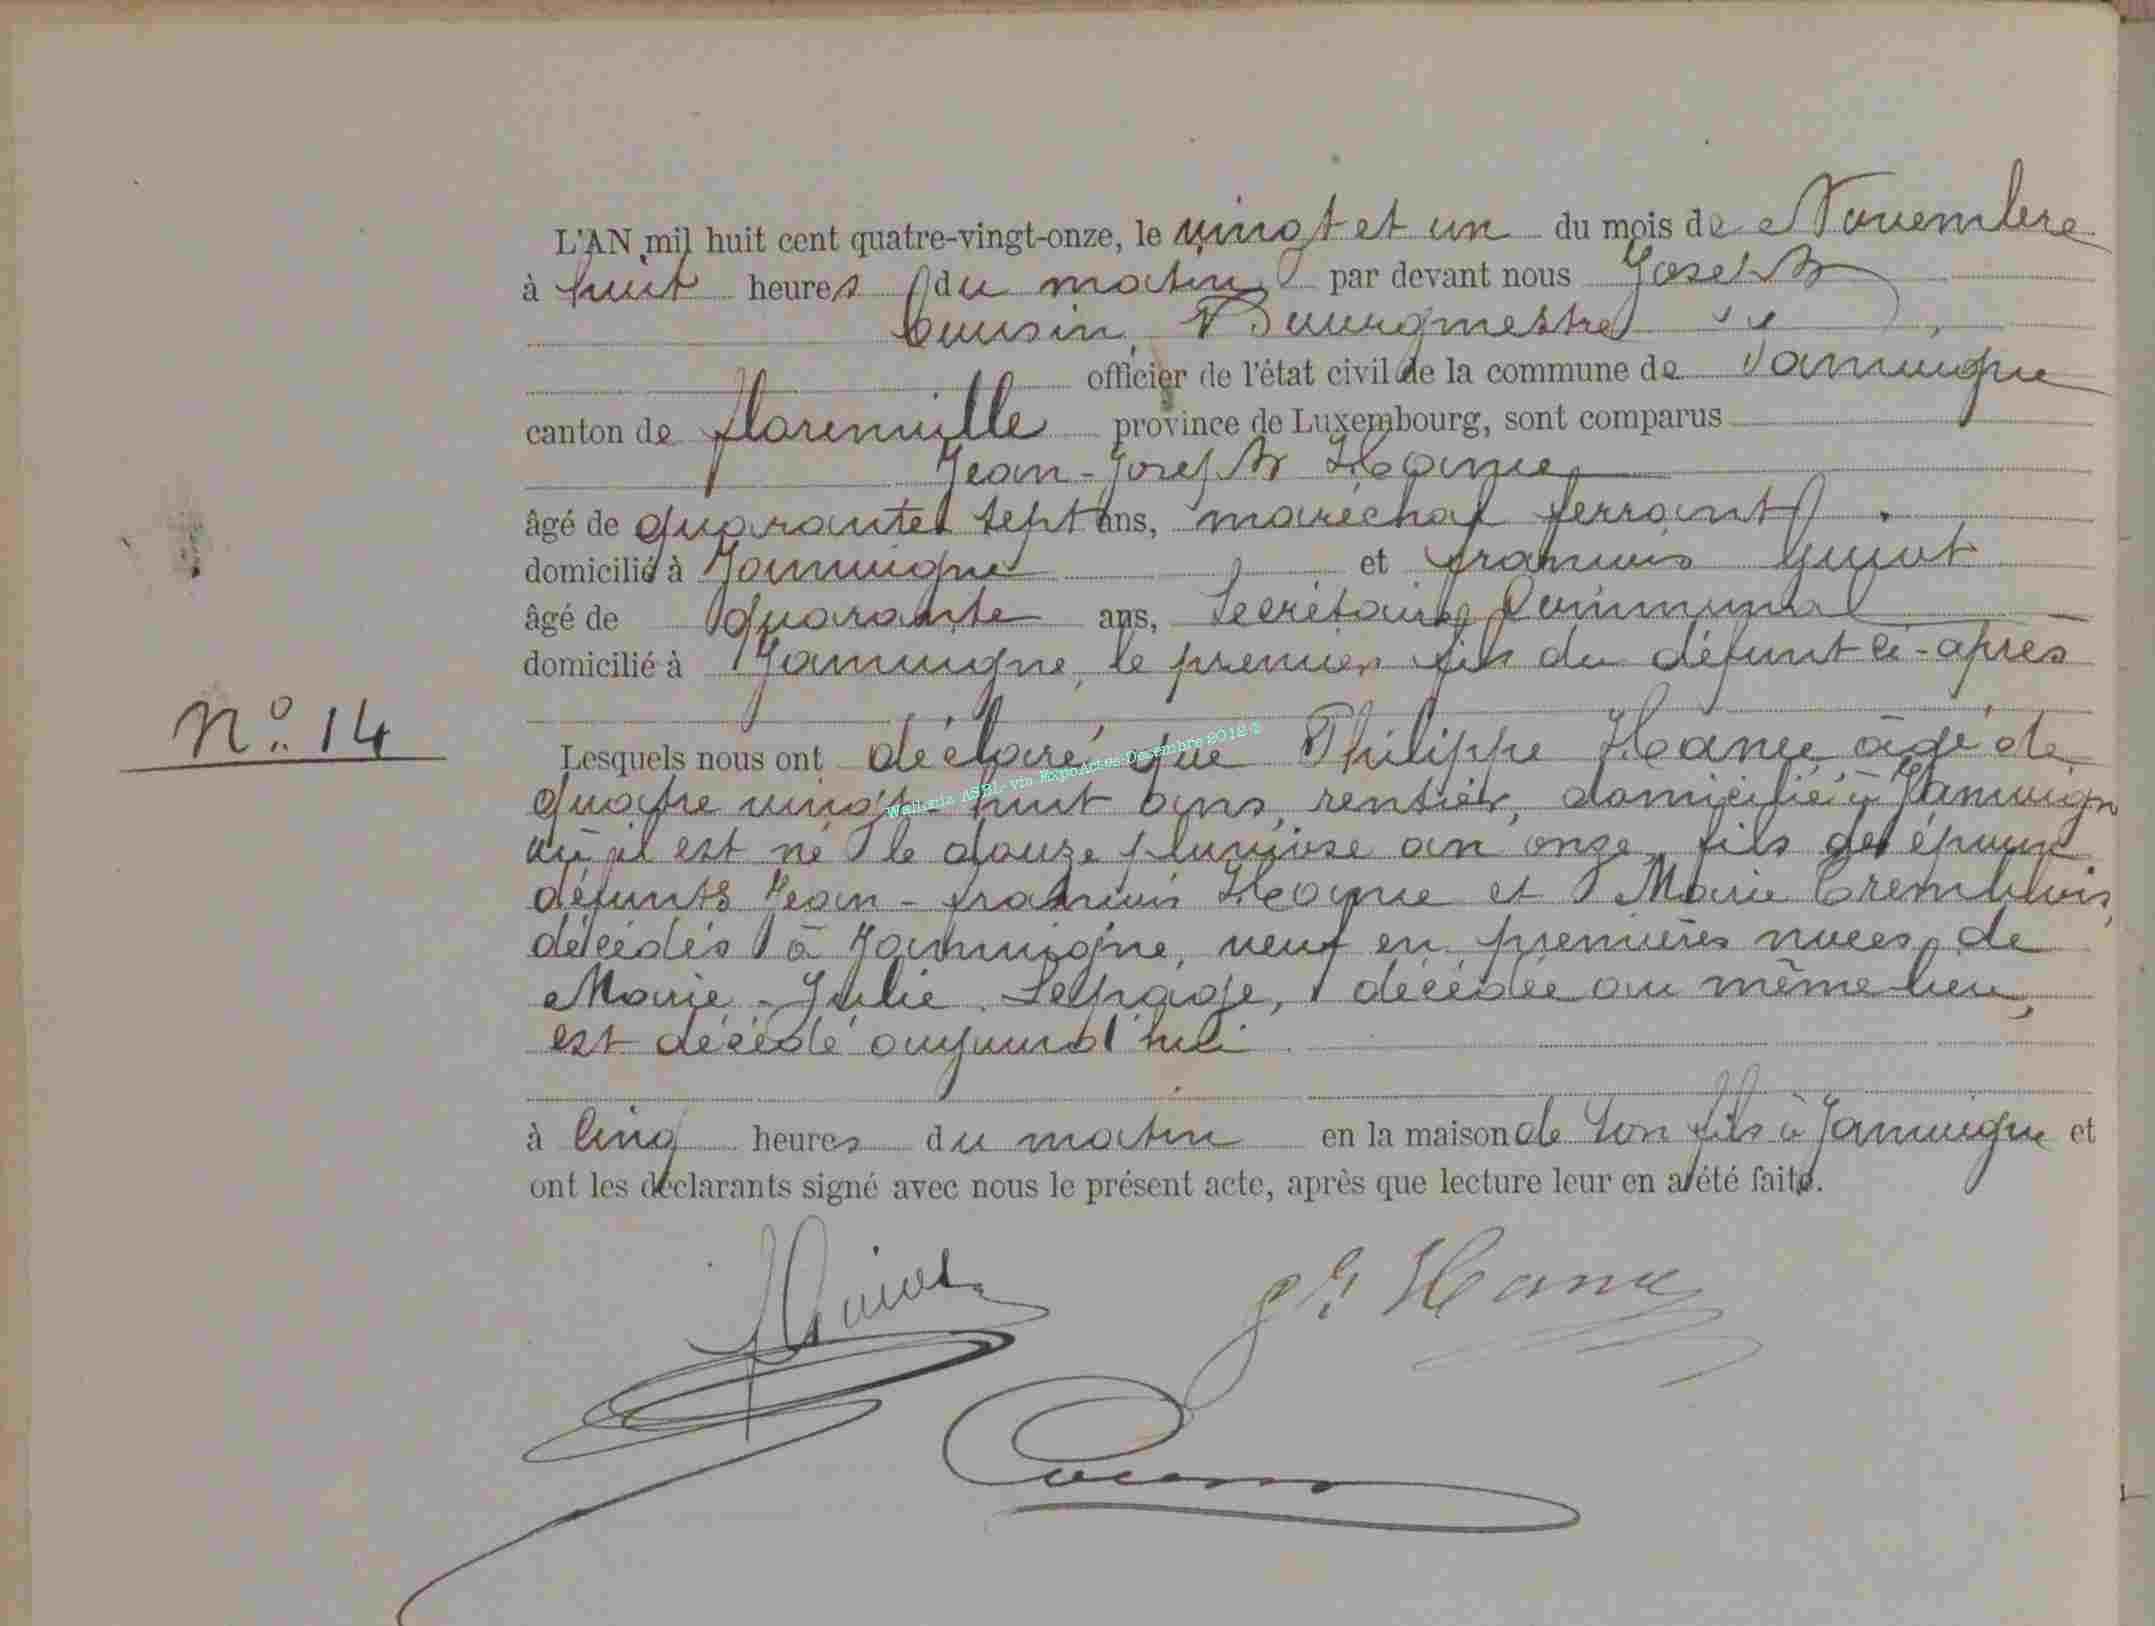 L'AN mil huit cent quatre-vingt-onze, le vingt et un du mois de Novembre
à huit heures du matin par devant nous Joseph
Cousin, Bourgmestre
officier de l'état civil de la commune de Jamoigne
canton de Florenville province de Luxembourg, sont comparus
Jean-Joseph Hanu
âgé de quarante sept ans, maréchal ferrant
domicilié à Jamoigne et François Guiot
âgé de quarante ans, Secrétaire Communal
domicilié à Jamoigne, le premier fils du défunt ci-après
N° 14
Lesquels nous ont déclaré que Philippe Hanu, âgé de
quatre vingt-huit ans, rentier, domicilié à Jamoigne
où il est né le douze pluviose an onze, fils des époux
défunts Jean-François Hanu et Marie
décédés à Jamoigne, veuf en premières noces de
Marie-Julie Lepage, décédée au même lieu,
est décédé aujourd'hui
à cinq heures du matin en la maison de son fils à Jamoigne et
ont les déclarants signé avec nous le présent acte, après que lecture leur en a été faite.
Guiot Hanu
Cousin
Wallonia ASBL via ExpoActes Decembre 2012